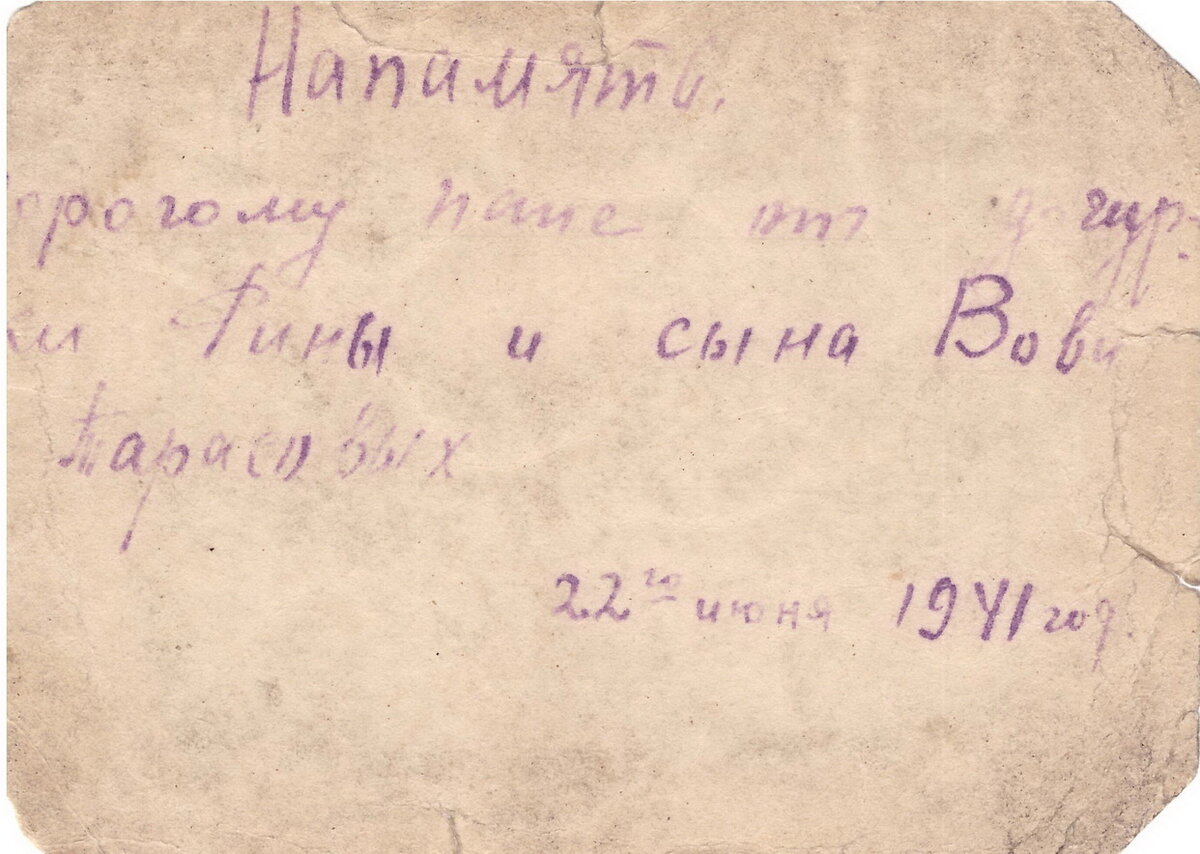 Напамять.
Дорогому папе от дочур-
ки Рины и сына Вовы
Тарасовых
22го июня 1941 год.